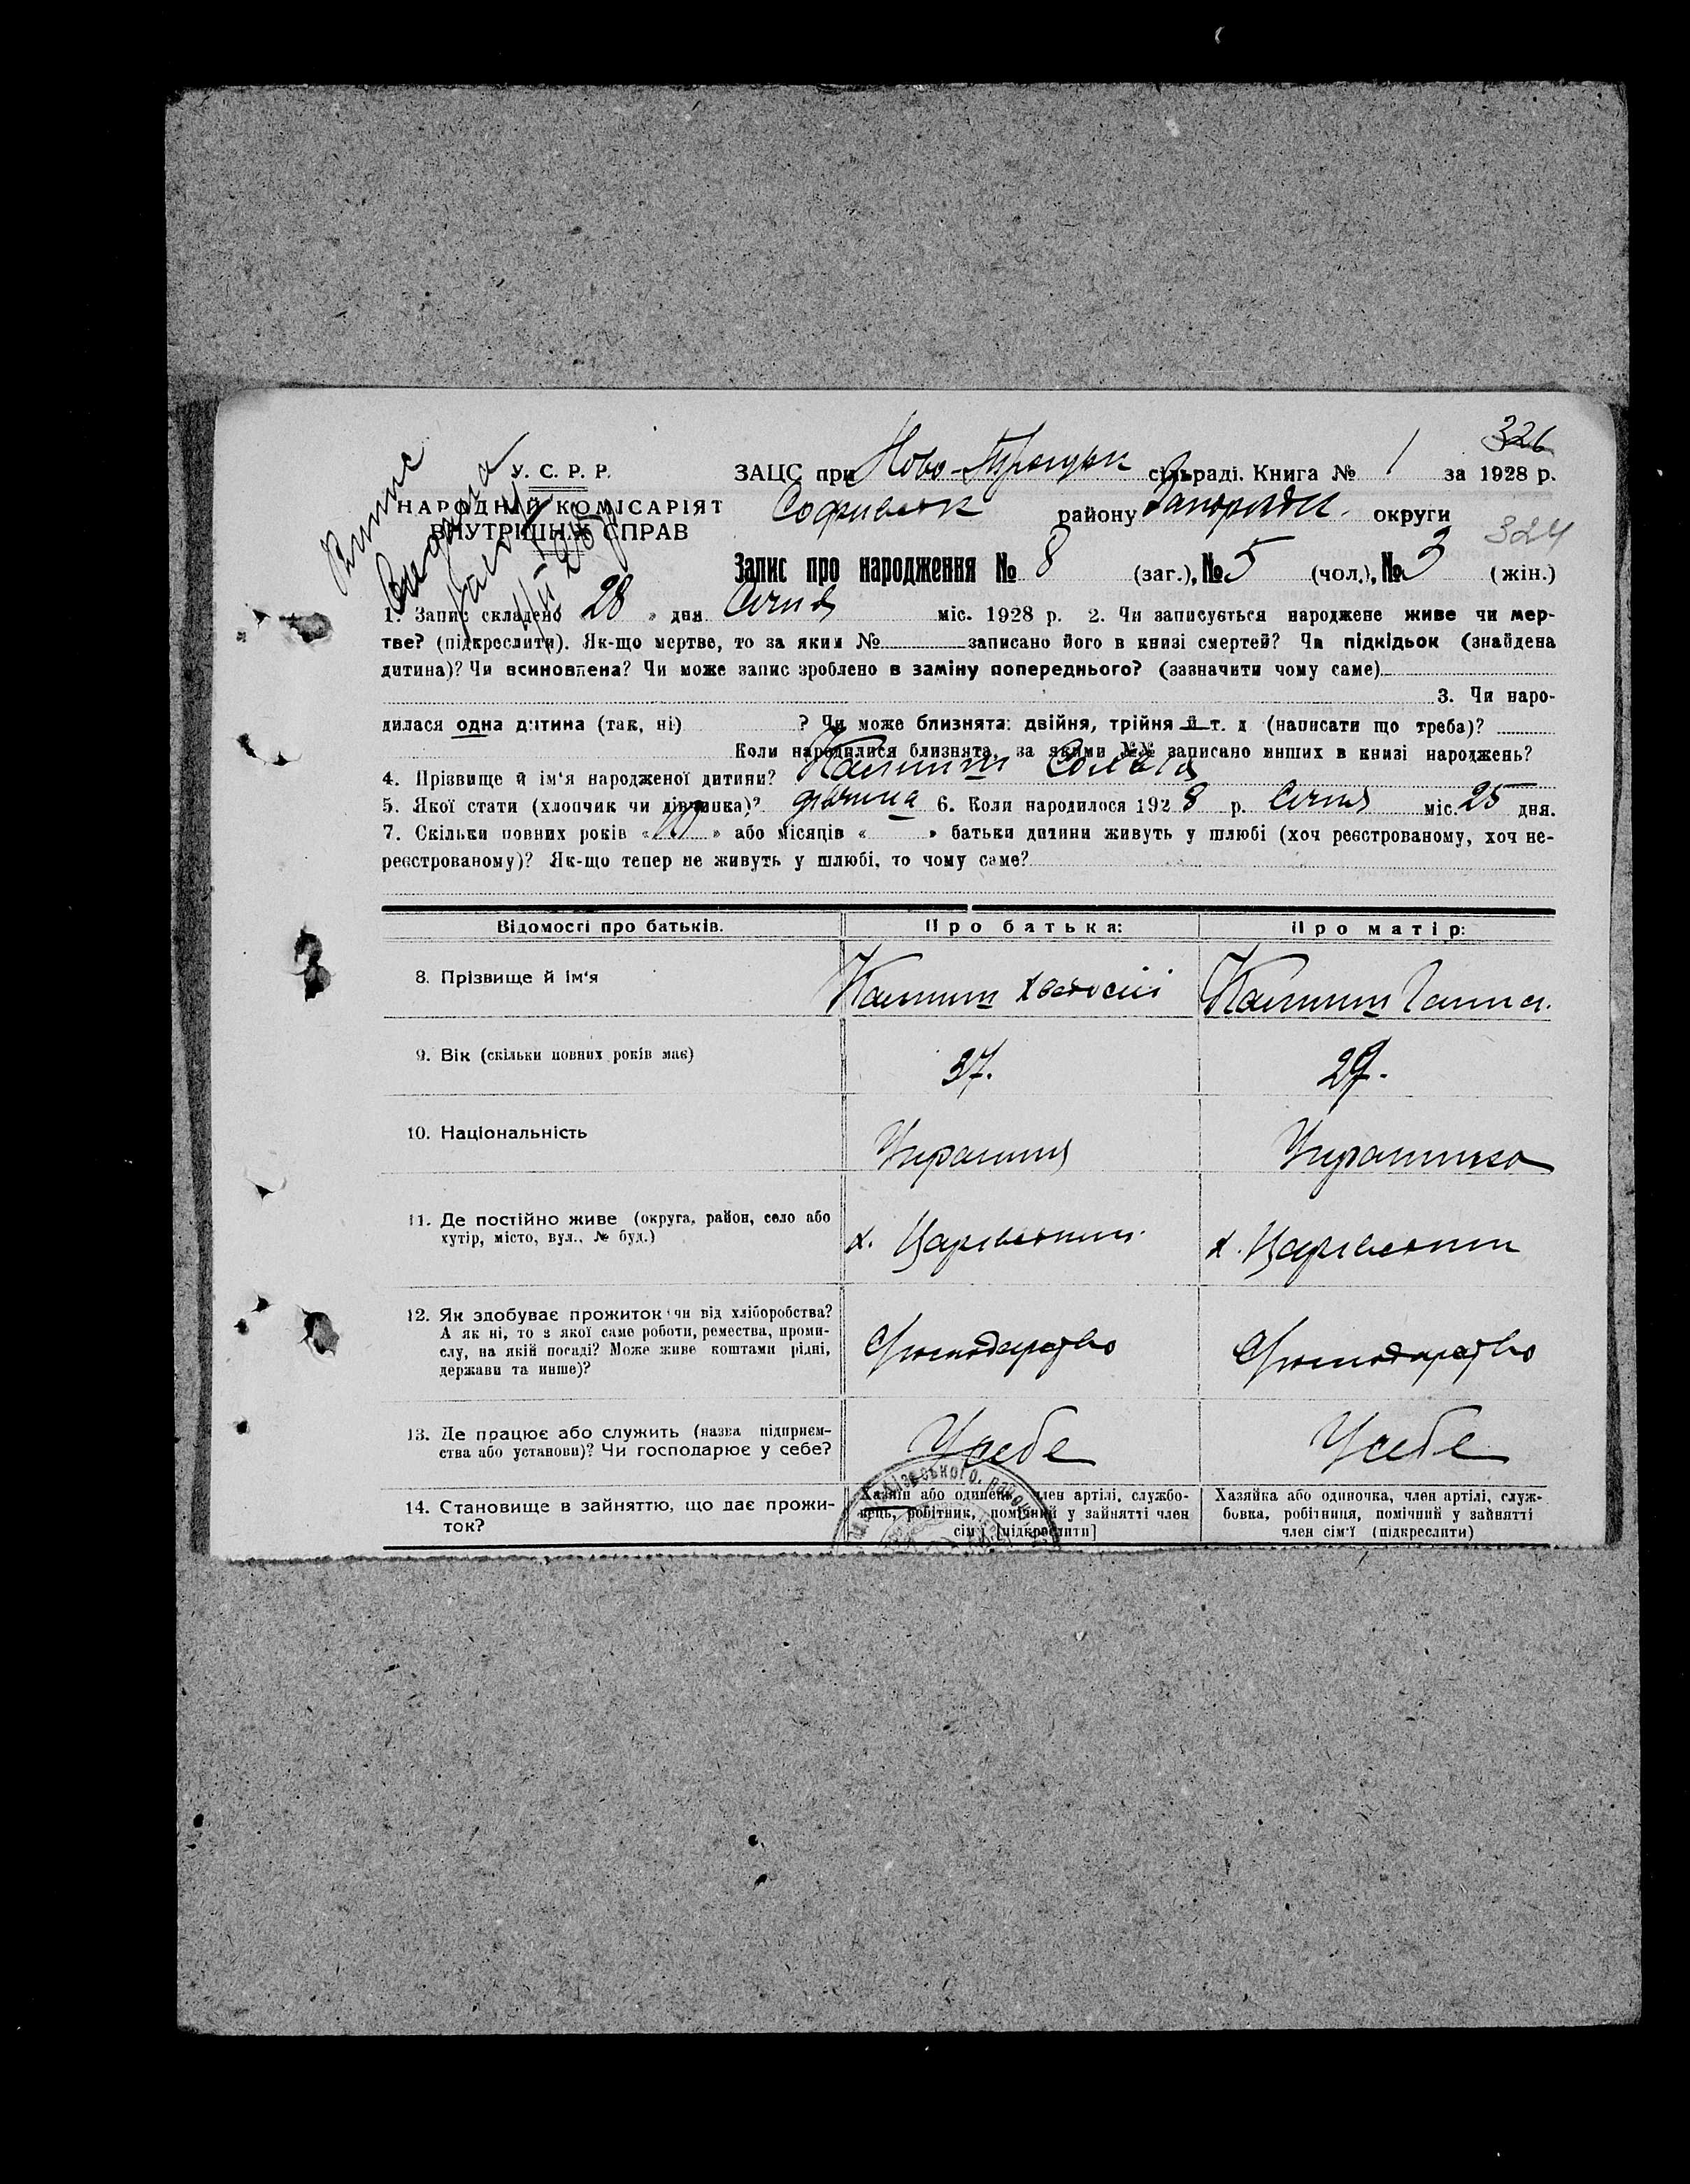 326
324
Випис
Видана
У. С. Р. Р.
НАРОДНІЙ КОМІСАРІЯТ
ВНУТРІШНІХ СПРАВ
ЗАЦС при Ново- сільраді. Книга № 1 за 1928 р.
Софиевск району Запоріжск. округи
Запис про народження № 8 (заг.), № 5 (чол.), № 3 (жін.)
1. Запис складено 28 » дня Січня міс. 1928 р. 2. Чи записується народжене живе чи мер-
тве? (підкреслити). Як-що мертве, то за яким № записано його в книзі смертей? Чи підкідьок (знайдена
дитина)? Чи всиновлена? Чи може запис зроблено в заміну попереднього? (зазначити чому саме)
3. Чи наро-
дилася одна дитина (так, ні) ? Чи може близнята: двійня, трійня й т. д (написати що треба)?
Коли народилися близнята, за якими №№ записано инших в книзі народжень?
4. Прізвище й ім'я народженої дитини?
5. Якої стати (хлопчик чи дівчинка)? дівчина 6. Коли народилося 1928 р. Січня міс. 25 дня.
7. Скільки повних років « » або місяців « » батьки дитини живуть у шлюбі (хоч реєстрованому, хоч не-
реєстрованому)? Як-що тепер не живуть у шлюбі, то чому саме?
Відомості про батьків. Про батька: Про матір:
8. Прізвище й ім'я
Хведосій Ганна.
9. Вік (скільки повних років має) 37. 29.
10. Національність Украинец Украинка
11. Де постійно живе (округа, район, село або
хутір, місто, вул., № буд.)
х. х.
12. Як здобуває прожиток чи від хліборобства?
А як ні, то з якої саме роботи, ремества, проми-
слу, на якій посаді? Може живе коштами рідні,
держави та инше)?
Господарство Господарство
13. Де працює або служить (назва підприєм-
ства або установи)? Чи господарює у себе?
У себе У себе
14. Становище в зайняттю, що дає прожи-
ток?
Хазяїн або одинець, член артілі, службо-
вець, робітник, помічний у зайнятті член
сім'ї [підкреслити]
Хазяйка або одиночка, член артілі, служ-
бовка, робітниця, помічний у зайнятті
член сім'ї (підкреслити)